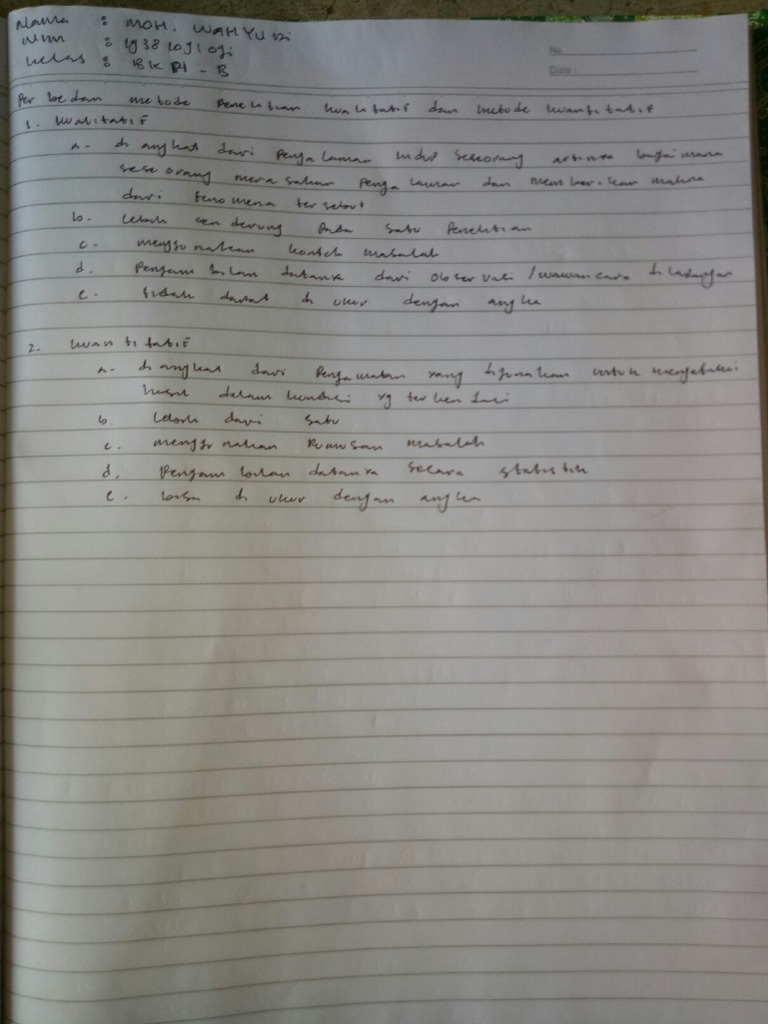 Nama : MOH. WAHYUDI
Nim : 19381091091
kelas : BKPI - B
No
Date :
Perbedaan metode Penelitian kualitatif dan metode kuantitatif
1. kualitatif
a. di angkat dari Pengalaman hidup seseorang artinya bagaimana
seseorang merasakan Pengalaman dan memberikan makna
dari fenomena tersebut
b. lebih cenderung Pada satu Penelitian
c. menggunakan kontek masalah
d. Pengambilan datanya dari observasi/wawancara di lapangan
e. tidak dapat di ukur dengan angka
2. kuantitatif
a. di angkat dari Pengamatan yang digunakan untuk mengetahui
hasil dalam kondisi yg terkendali
b. lebih dari satu
c. menggunakan Rumusan masalah
d. Pengambilan datanya secara statistik
e. bisa di ukur dengan angka